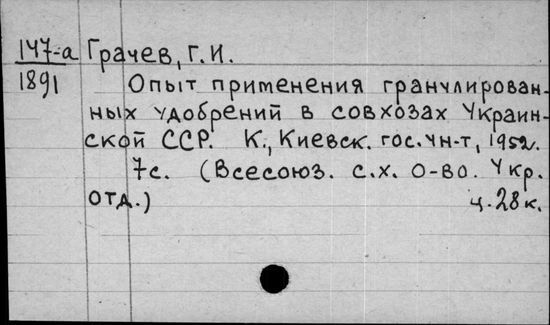 147-а Грачев, Г. И.
1891 Опыт применения гранулирован-
ных удобрений в совхозах Украин-
ской ССР. К., Киевск. гос. ун-т, 1952.
7с. (Всесоюз. с.х. о-во. Укр.
отд.) ц. 28 к.